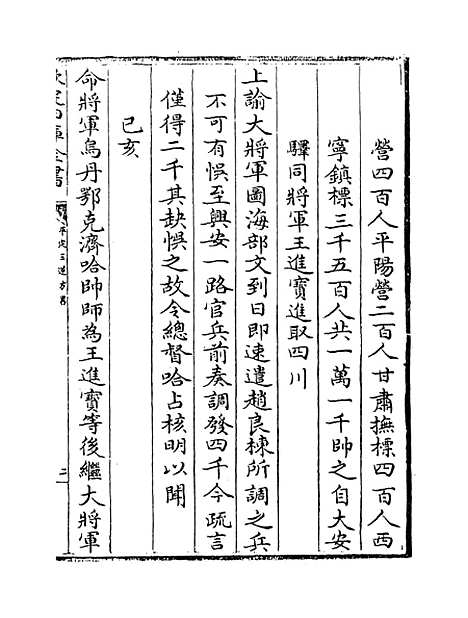 營四百人平陽營二百人甘肅撫標四百人西
寧鎮標三千五百人共一萬一千帥之自大安
驛同將軍王進寶進取四川
上諭大將軍圖海部文到日即速遣趙良棟所調之兵
不可有悞至興安一路官兵前奏調發四千今疏言
僅得二千其缺悞之故令總督哈占核明以聞
己亥
命將軍烏丹鄂克濟哈帥師為王進寶等後繼大將軍
欽定四庫全書
平定三逆方畧